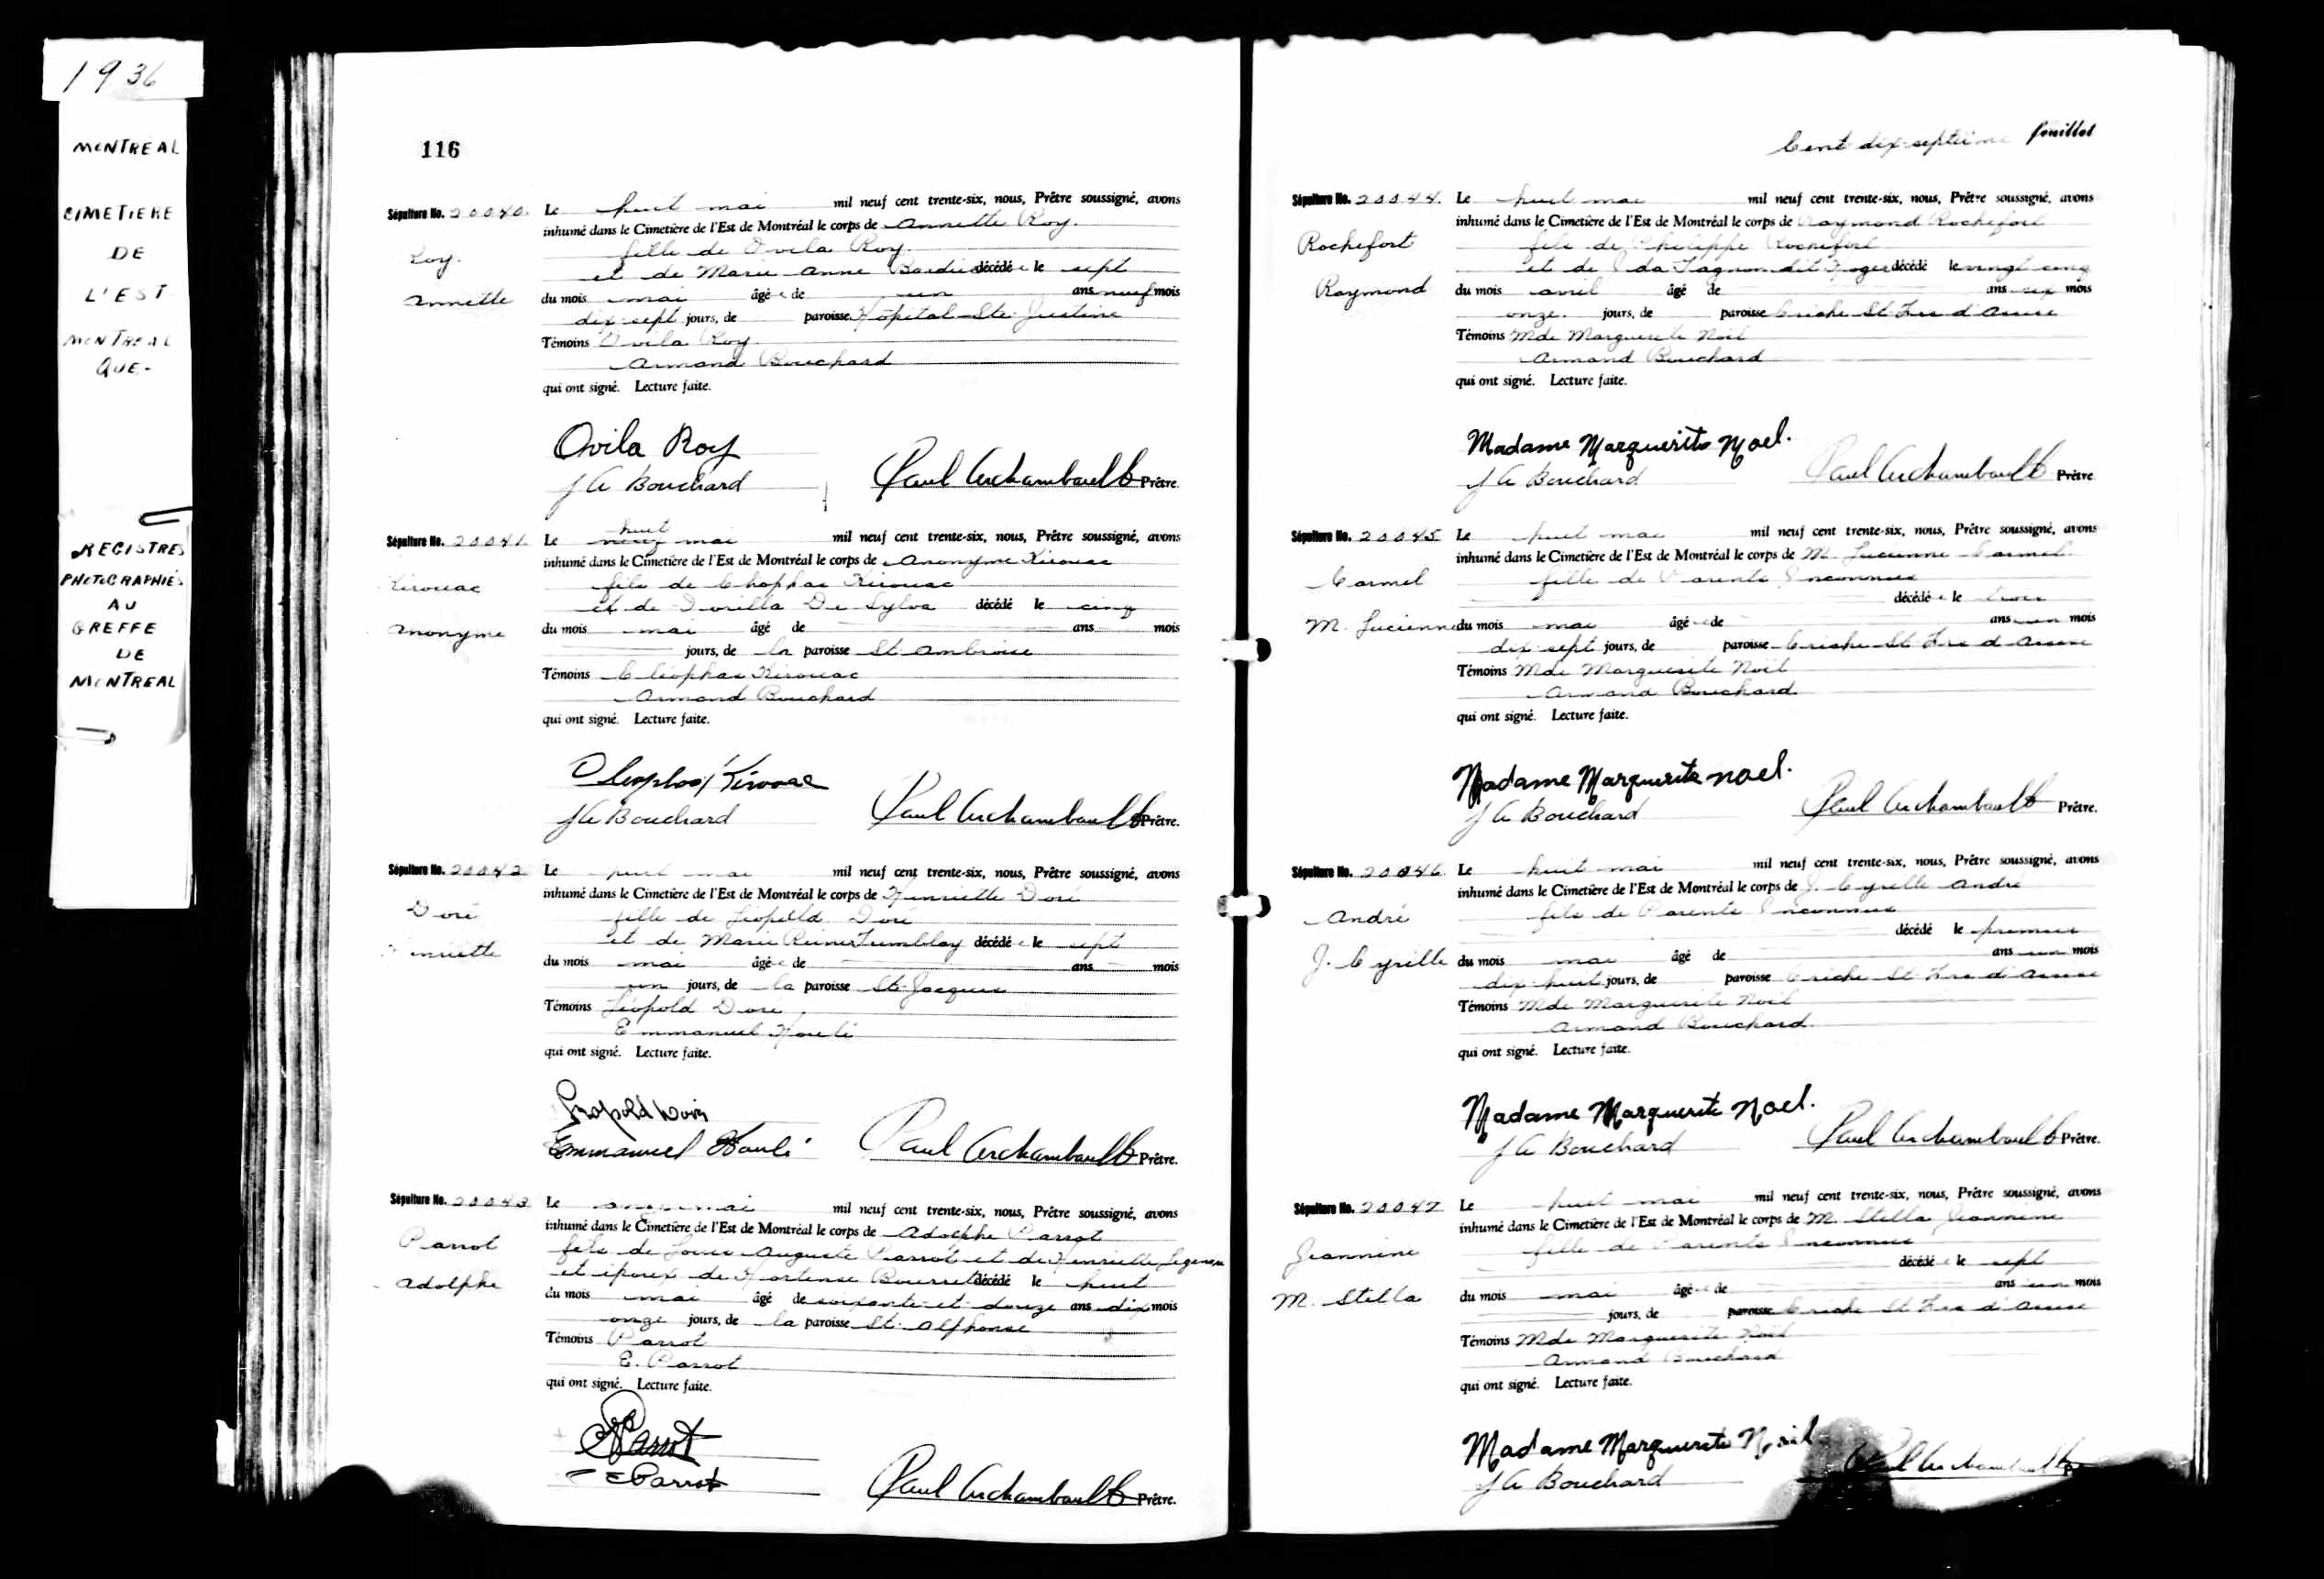 1936
MONTREAL
CIMETIERE
DE
L'EST
MONTREAL
QUE-
REGISTRES
PHOTOGRAPHIÉS
AU
GREFFE
DE
MONTREAL
116
Sépulture No. 20040. Le huit mai mil neuf cent trente-six, nous, Prêtre soussigné, avons
inhumé dans le Cimetière de l'Est de Montréal le corps de Annette Roy.
Roy. fille de Ovila Roy.
et de Marie Anne décédée le sept
Annette du mois mai âgée de un ans neuf mois
dix-sept jours, de paroisse Hôpital Ste-Justine
Témoins Ovila Roy
Armand Bouchard
qui ont signé. Lecture faite.
Ovila Roy
J A Bouchard Paul Archambault Prêtre.
Sépulture No. 20041. Le huit mai mil neuf cent trente-six, nous, Prêtre soussigné, avons
inhumé dans le Cimetière de l'Est de Montréal le corps de Anonyme Kirouac
Kirouac fils de Kirouac
et de De Sylva décédé le cinq
Anonyme du mois mai âgé de ans mois
jours, de la paroisse St-Ambroise
Témoins Cléophas Kirouac
Armand Bouchard
qui ont signé. Lecture faite.
Cléophas Kirouac
J A Bouchard Paul Archambault Prêtre.
Sépulture No. 20042 Le huit mai mil neuf cent trente-six, nous, Prêtre soussigné, avons
inhumé dans le Cimetière de l'Est de Montréal le corps de Henriette Doré
Doré fille de Léopold Doré
Henriette et de Marie Tremblay décédée le sept
du mois mai âgée de ans mois
un jours, de la paroisse St-Jacques
Témoins Léopold Doré
Emmanuel
qui ont signé. Lecture faite.
Léopold Doré
Emmanuel Paul Archambault Prêtre.
Sépulture No. 20043 Le onze mai mil neuf cent trente-six, nous, Prêtre soussigné, avons
inhumé dans le Cimetière de l'Est de Montréal le corps de Adolphe Parrot
Parrot fils de Louis Auguste Parrot et de Henriette
et époux de Hortense décédé le huit
Adolphe du mois mai âgé de soixante-et-douze ans dix mois
onze jours, de la paroisse St-Alphonse
Témoins Parrot
E. Parrot
qui ont signé. Lecture faite.
Parrot
E Parrot Paul Archambault Prêtre.
Cent dix-septième feuillet
Sépulture No. 20044. Le huit mai mil neuf cent trente-six, nous, Prêtre soussigné, avons
inhumé dans le Cimetière de l'Est de Montréal le corps de Raymond Rochefort
Rochefort fils de Philippe Rochefort
et de dit décédé le vingt cinq
Raymond du mois avril âgé de ans six mois
onze jours, de paroisse Crèche St Frs d'Assise
Témoins Mde Marguerite Noël
Armand Bouchard
qui ont signé. Lecture faite.
Madame Marguerite Noel.
J A Bouchard Paul Archambault Prêtre
Sépulture No. 20045. Le huit mai mil neuf cent trente-six, nous, Prêtre soussigné, avons
inhumé dans le Cimetière de l'Est de Montréal le corps de M. Lucienne Carmel
Carmel fille de Parents Inconnus
décédée le trois
M. Lucienne du mois mai âgée de ans un mois
dix sept jours, de paroisse Crèche St Frs d'Assise
Témoins Mde Marguerite Noël
Armand Bouchard
qui ont signé. Lecture faite.
Madame Marguerite noel.
J A Bouchard Paul Archambault Prêtre.
Sépulture No. 20046. Le huit mai mil neuf cent trente-six, nous, Prêtre soussigné, avons
inhumé dans le Cimetière de l'Est de Montréal le corps de J. Cyrille André
André fils de Parents Inconnus
décédé le premier
J. Cyrille du mois mai âgé de ans un mois
dix-huit jours, de paroisse Crèche St Frs d'Assise
Témoins Mde Marguerite Noël
Armand Bouchard
qui ont signé. Lecture faite.
Madame Marguerite Noel.
J A Bouchard Paul Archambault Prêtre.
Sépulture No. 20047 Le huit mai mil neuf cent trente-six, nous, Prêtre soussigné, avons
inhumé dans le Cimetière de l'Est de Montréal le corps de M. Stella Jeannine
Jeannine fille de Parents Inconnus
décédée le sept
M. Stella du mois mai âgée de ans un mois
jours, de paroisse Crèche St Frs d'Assise
Témoins Mde Marguerite Noël
Armand Bouchard
qui ont signé. Lecture faite.
Madame Marguerite Noël
J A Bouchard Paul Archambault